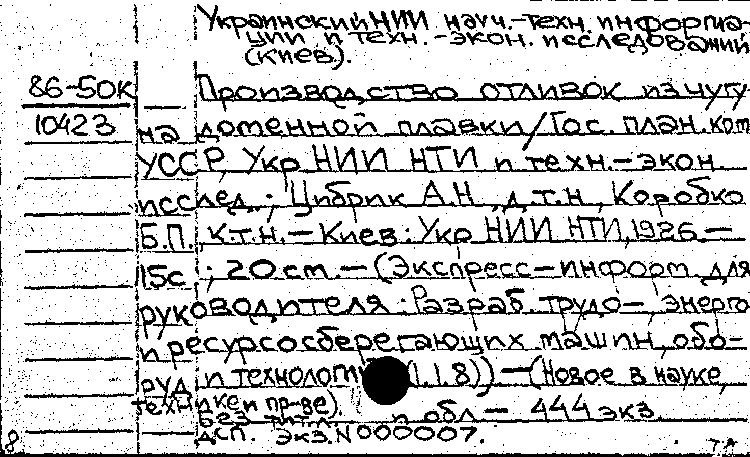 Украинский НИИ науч.-техн. информа-
ции и техн.-экон. исследований
(Киев).
86-50К Производство отливок из чугу-
10423 на доменной плавки/Гос. план. ком.
УССР, Укр НИИ НТИ и техн.-экон.
исслед.; Цибрик А.Н., д.т.н., Коробко
Б.П., к.т.н. – Киев: Укр НИИ НТИ, 1986. –
15с.; 20 см. – (Экспресс-информ. для
руководителя: Разраб. трудо-, энерго
и ресурсосберегающих машин, обо-
руд. и технологи (1.1.8)) – (Новое в науке,
технике и пр-ве).
Без тит. л. и обл – 444 экз.
ДСП. Экз. N 000007.
8